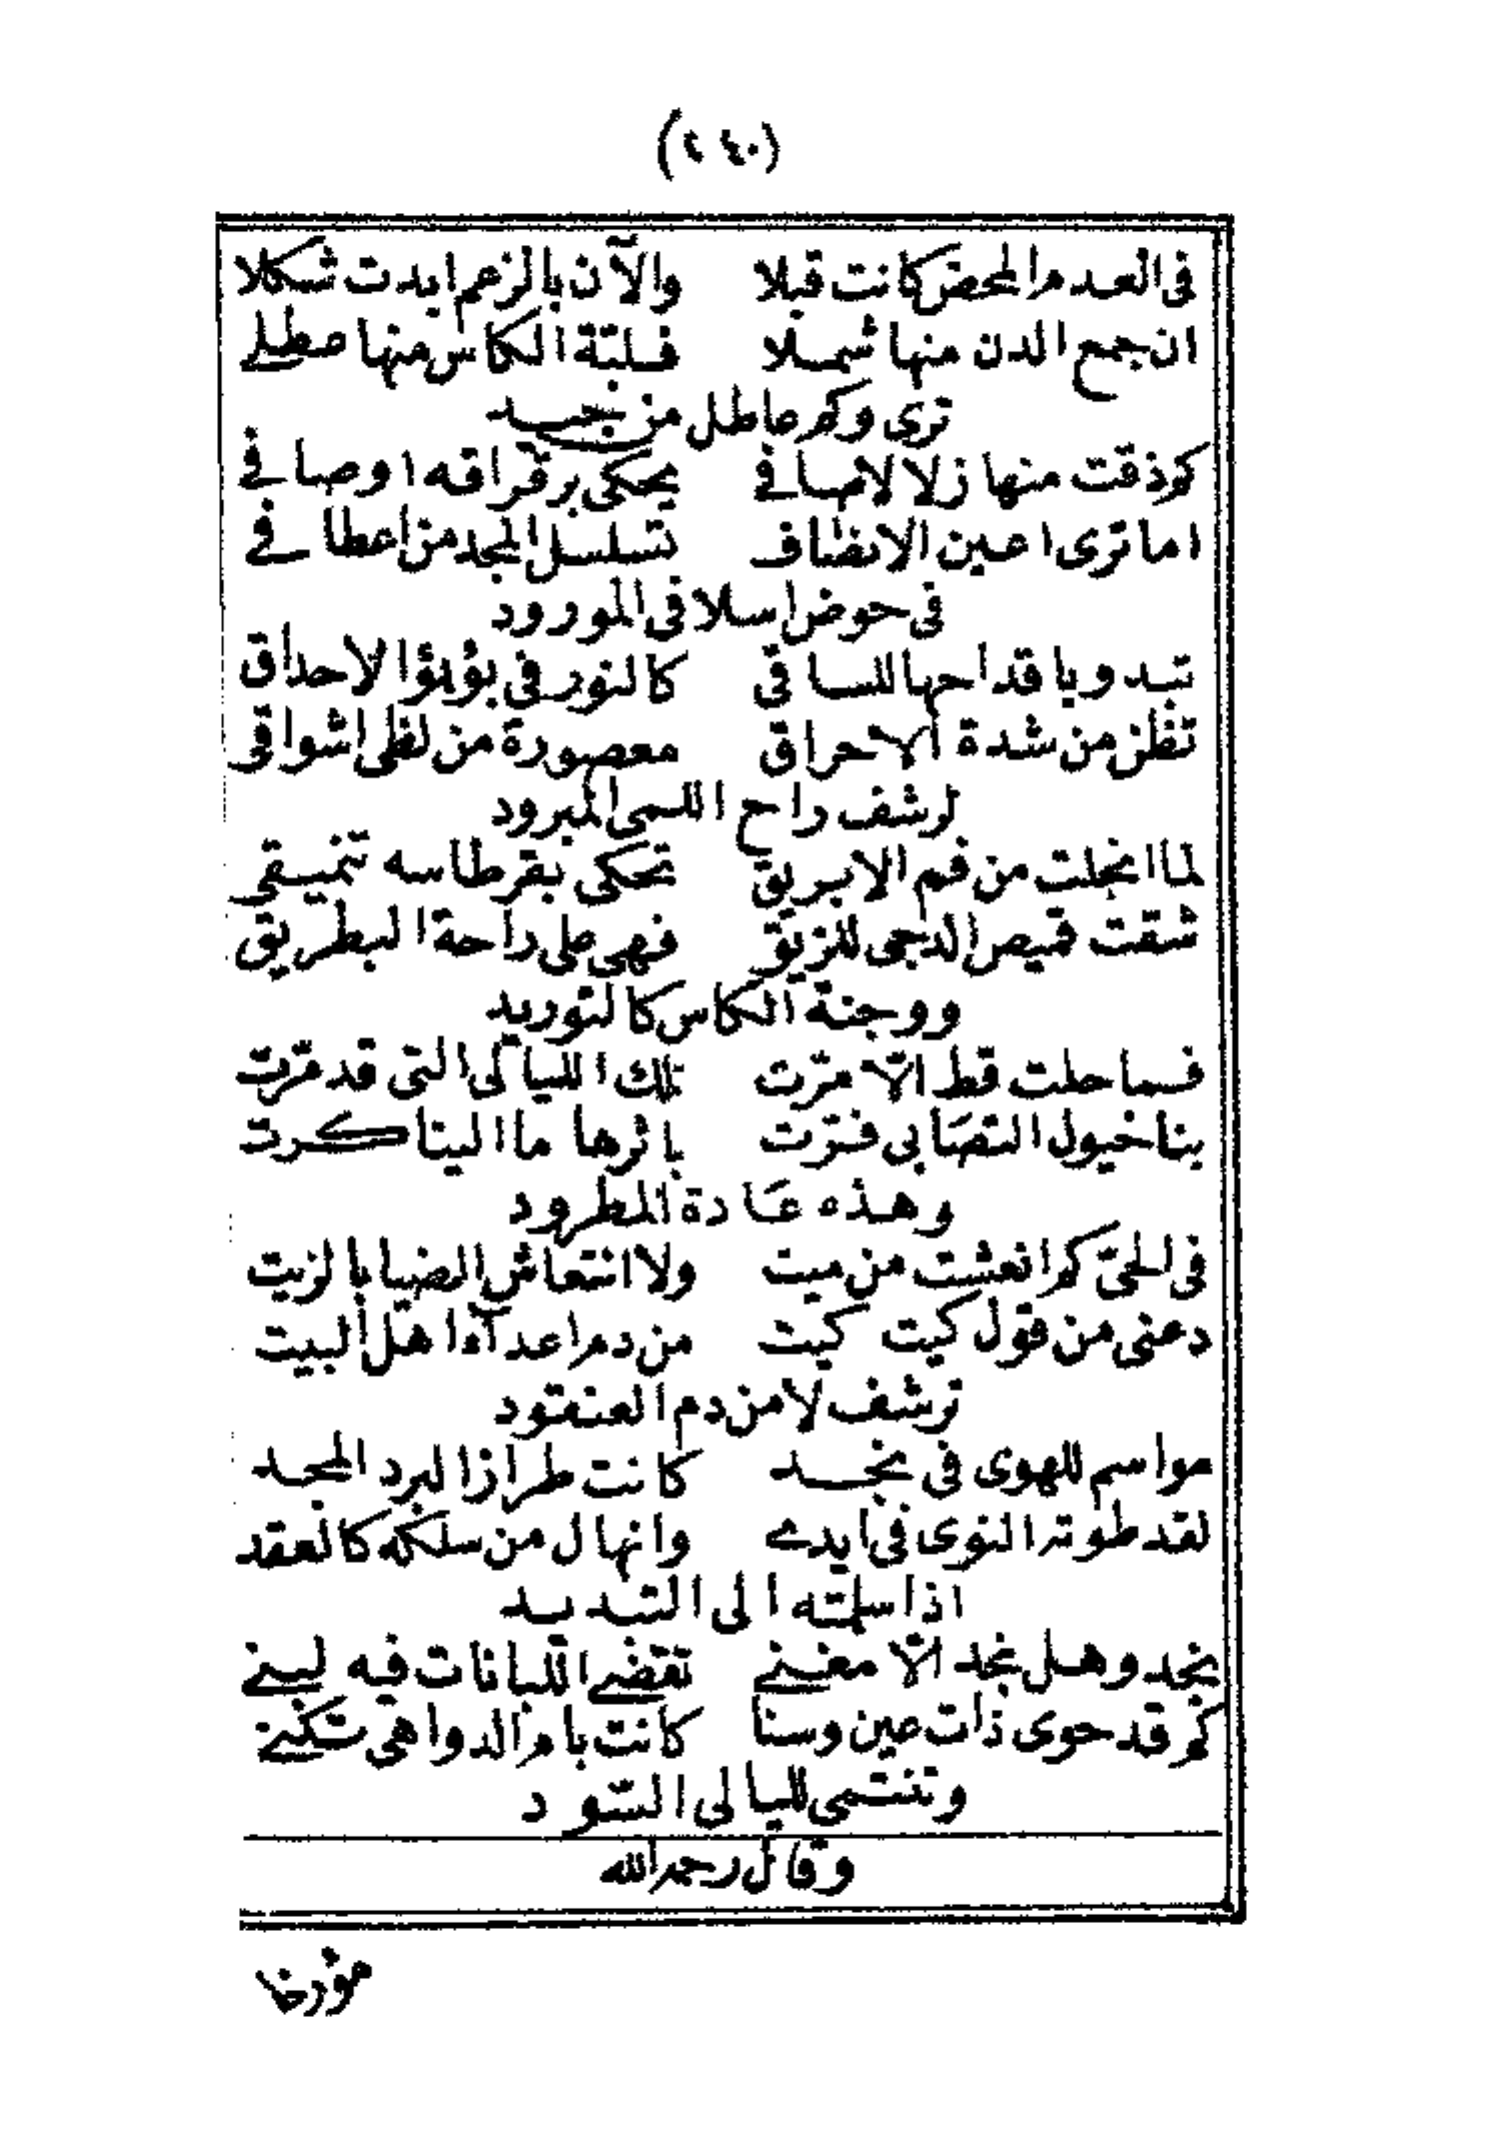 (٢٤٠)
فى العدم المحض كانت قبلا والآن بالزعم ابدت شكلا
ان جمع الدن منها شملا فلبّة الكاس منها عطلے
ترى وكم عاطل من جيد
كم ذقت منها زلالا صافے يحكى برقراقه اوصافے
اما ترى اعين الانصاف تسلسل المجد من اعطافے
فى حوض اسلافى المورود
تبدو باقداحها للساقى كالنور فى بؤبؤ الاحداق
تظن من شدة الاحراق معصورة من لظى اشواقى
لرشف راح اللمى المبرود
لما انجلت من فم الابريق تحكى بقرطاسه تنميقى
شقّت قميص الدجى للزيق فهى على راحة البطريق
ووجنة الكاس كالتوريد
فما حلت قط الّا مرّت تلك الليالى التى قد مرّت
بنا خيول التصابى فرّت باثرها ما الينا كرت
وهذه عادة المطرود
فى الحىّ كم انعشت من ميت ولا انتعاش الضيا بالزيت
دعنى من قول كيت كيت من دم اعدآء اهل البيت
ترشف لا من دم العنقود
مواسم للهوى فى نجد كانت طرازا لبرد المجد
لقد طوته النوى فى ايدے وانهال من سلكه كالعقد
اذا سلمته الى التبديد
نجد وهل نجد الّا مغنے تقضے اللبانات فيه لبنے
كم قد حوى ذات عين وسنا كانت بام الدواهى تكنے
وتنتمى لليالى السّود
وقال رحمه الله
مؤرخا